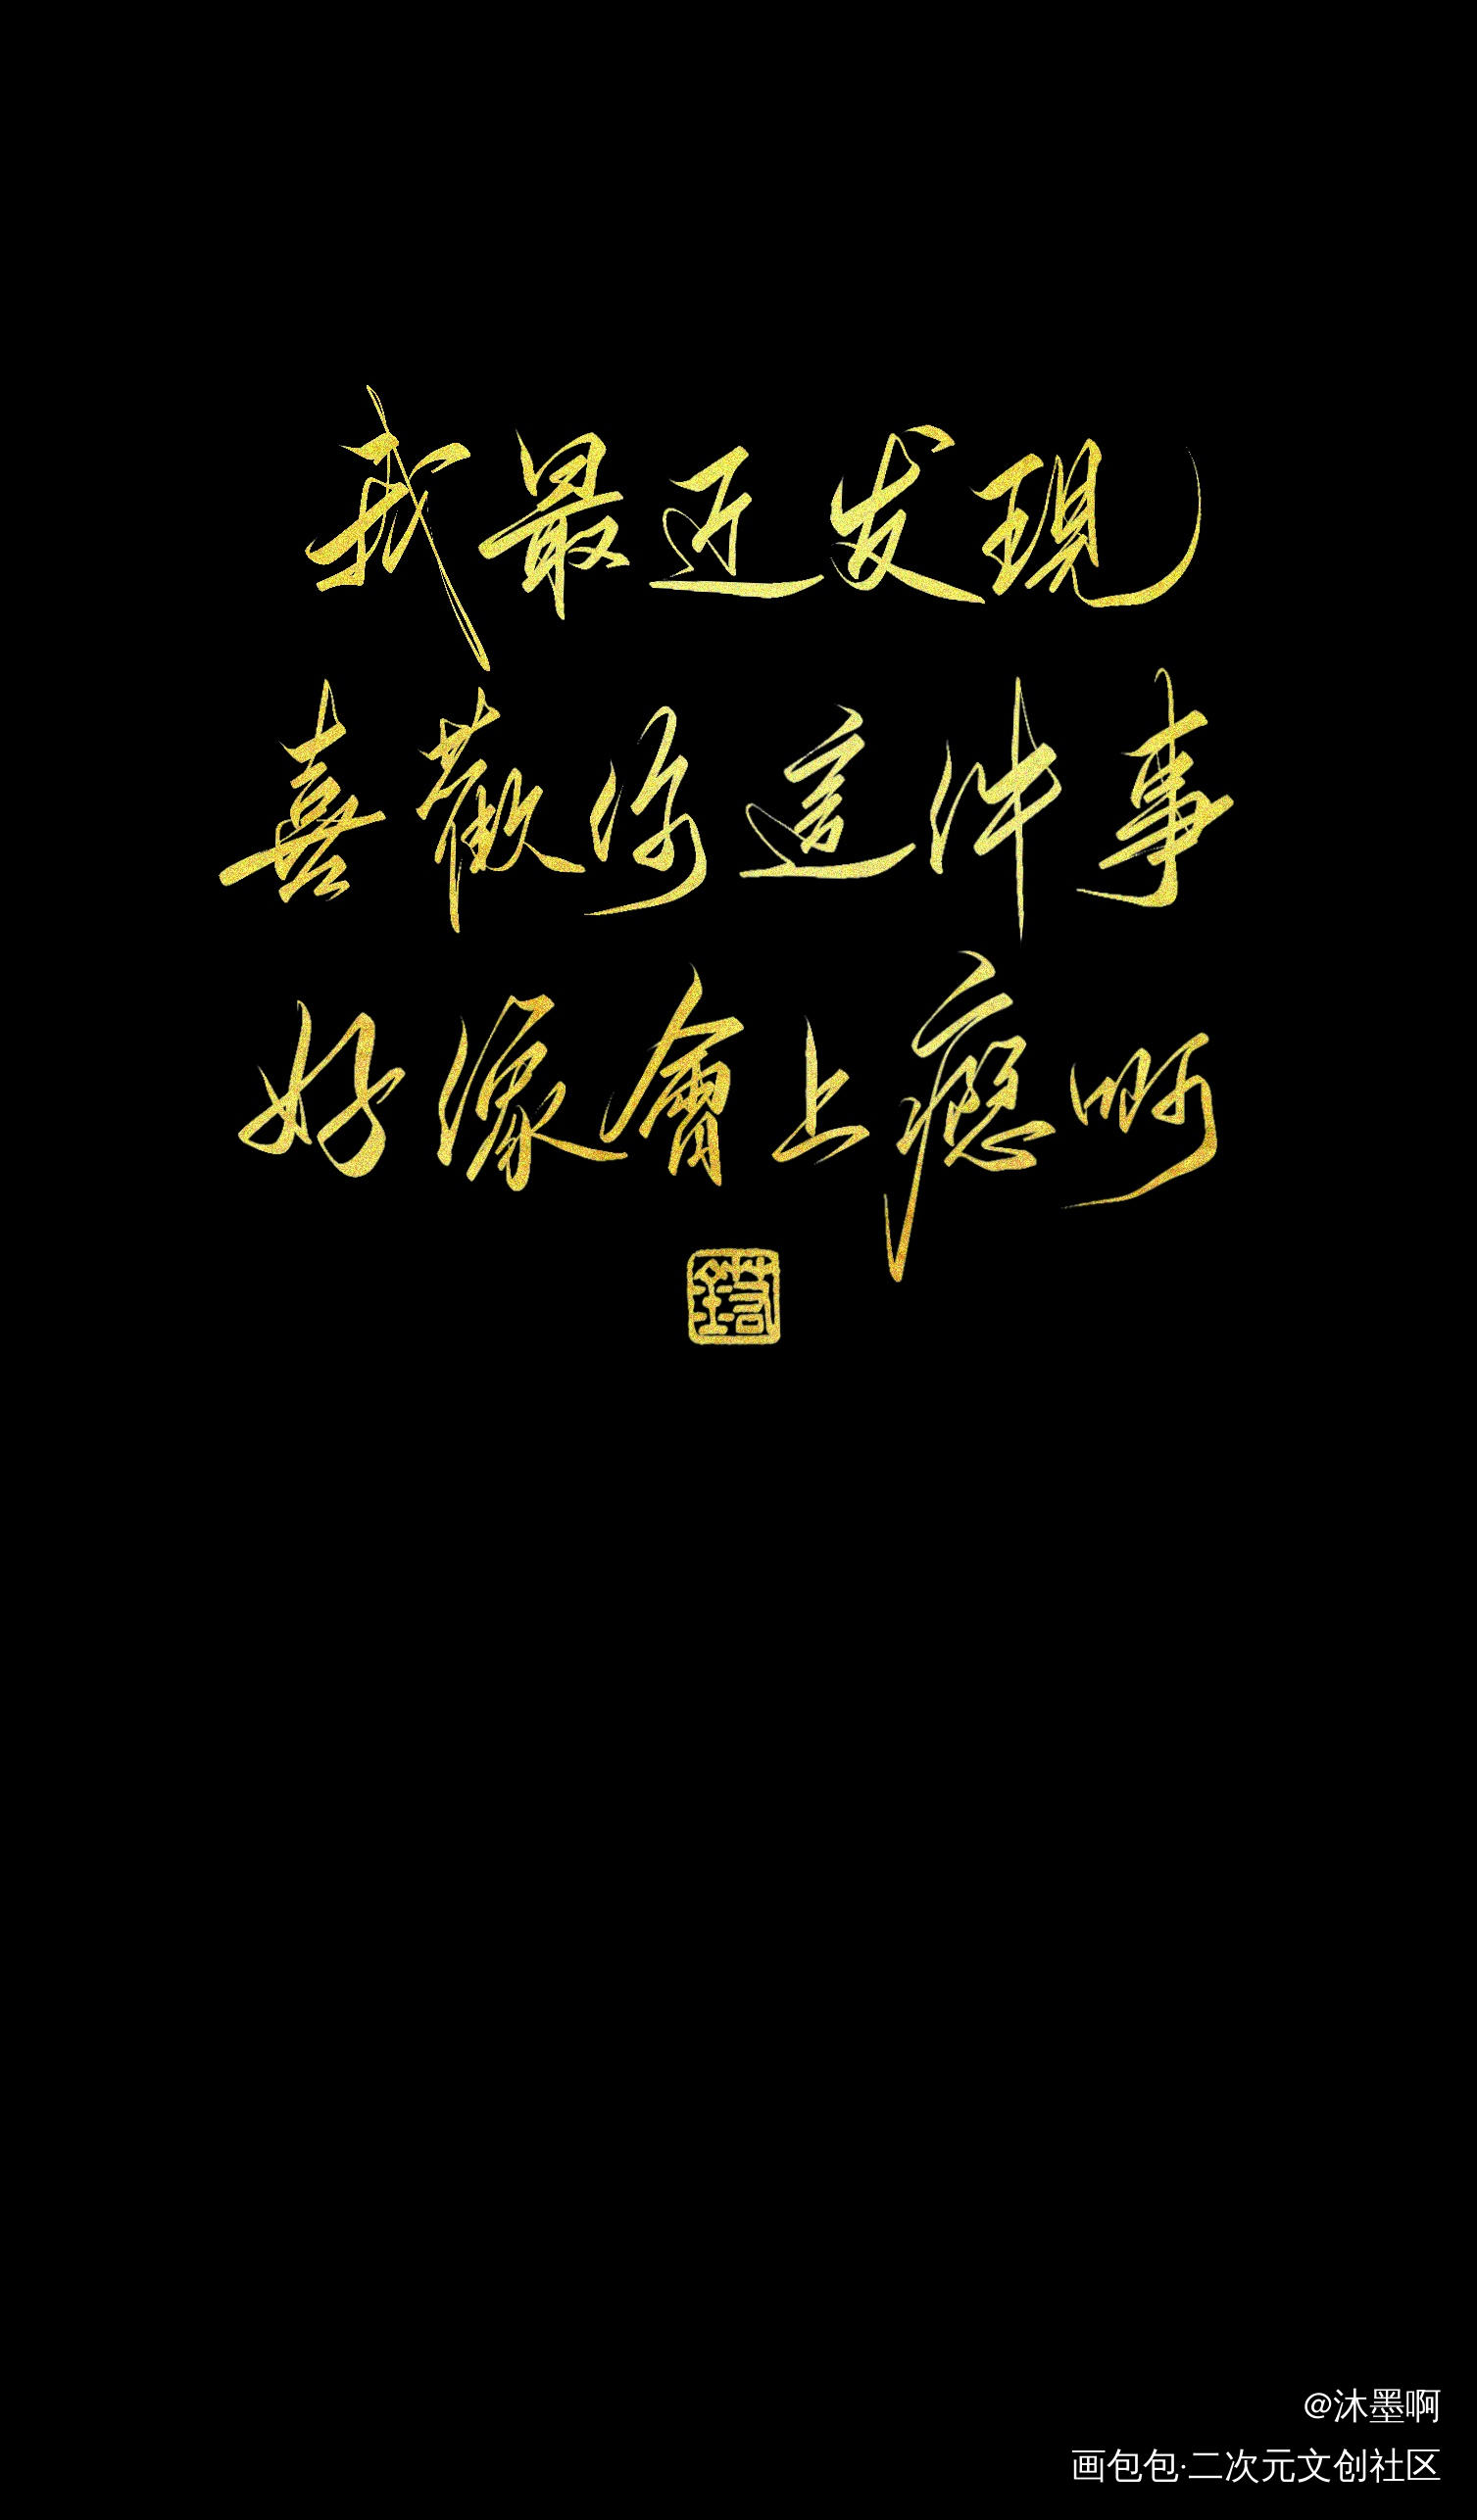 我最近发現
喜歡你這件事
好像會上癮啊
@沐墨啊
画包包·二次元文创社区